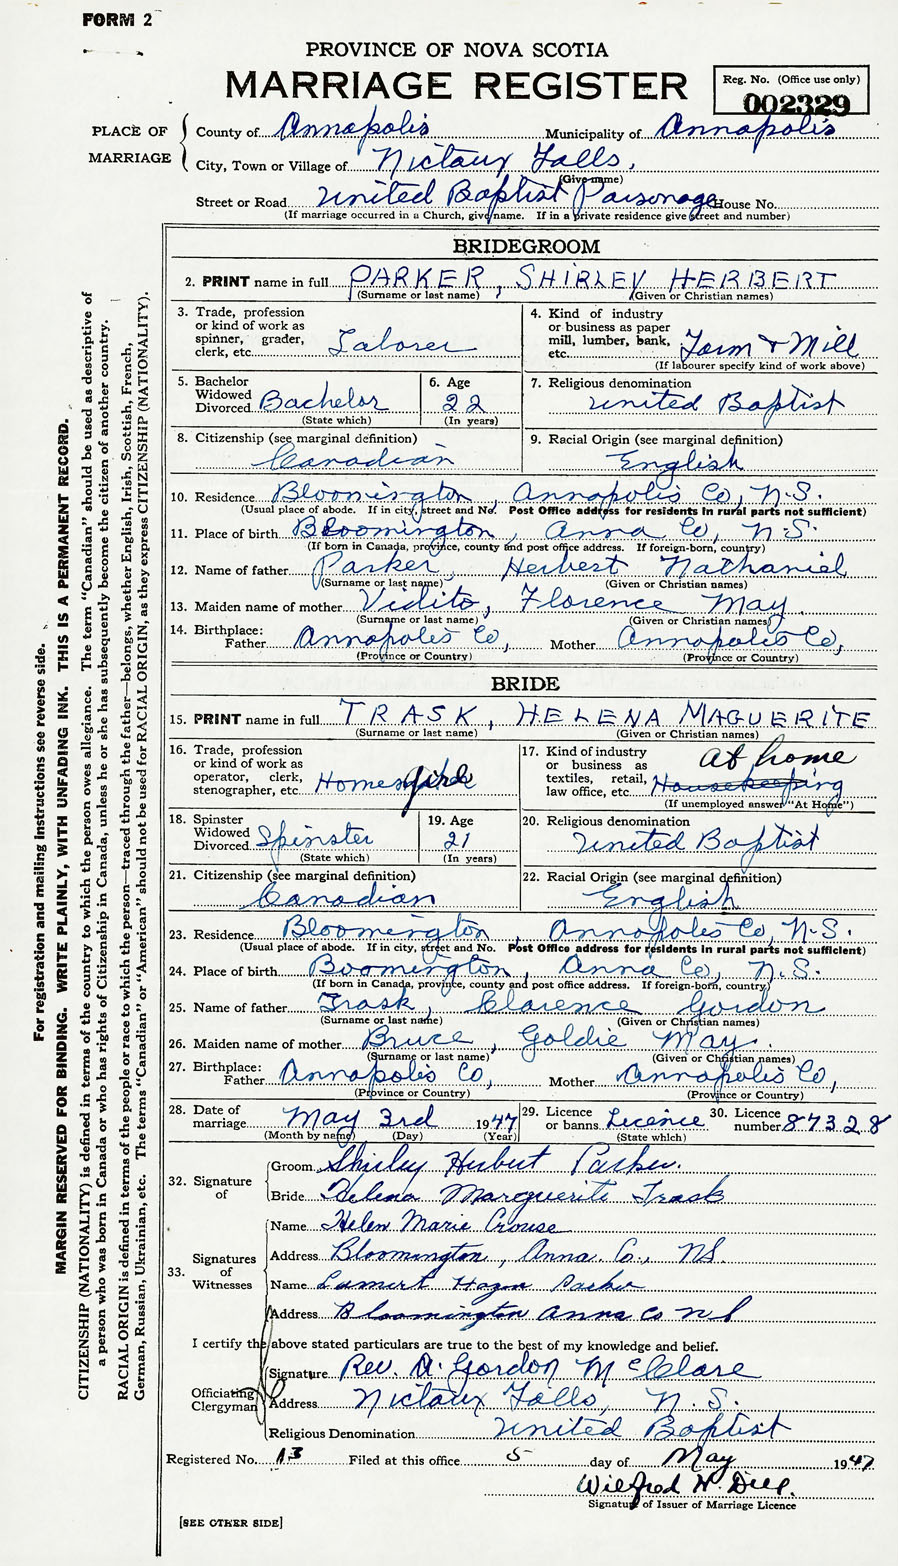 FORM 2
PROVINCE OF NOVA SCOTIA
MARRIAGE REGISTER
Reg. No. (Office use only)
002329
PLACE OF MARRIAGE
County of Annapolis Municipality of Annapolis
City, Town or Village of Nictaux Falls,
(Give name)
Street or Road United Baptist Parsonage House No.
(If marriage occurred in a Church, give name. If in a private residence give street and number)
BRIDEGROOM
2. PRINT name in full PARKER, SHIRLEY HERBERT
(Surname or last name) (Given or Christian names)
3. Trade, profession or kind of work as spinner, grader, clerk, etc. Laborer
4. Kind of industry or business as paper mill, lumber, bank, etc. Farm & Mill
(If labourer specify kind of work above)
5. Bachelor Widowed Divorced Bachelor
(State which)
6. Age 22
(In years)
7. Religious denomination United Baptist
8. Citizenship (see marginal definition) Canadian
9. Racial Origin (see marginal definition) English
10. Residence Bloomington, Annapolis Co, N.S.
(Usual place of abode. If in city, street and No. Post Office address for residents in rural parts not sufficient)
11. Place of birth Bloomington, Anna Co, N.S.
(If born in Canada, province, county and post office address. If foreign-born, country)
12. Name of father Parker, Herbert Nathaniel
(Surname or last name) (Given or Christian names)
13. Maiden name of mother Vidito, Florence May
(Surname or last name) (Given or Christian names)
14. Birthplace: Father Annapolis Co, Mother Annapolis Co,
(Province or Country) (Province or Country)
BRIDE
15. PRINT name in full TRASK, HELENA MAGUERITE
(Surname or last name) (Given or Christian names)
16. Trade, profession or kind of work as operator, clerk, stenographer, etc. Home girl
17. Kind of industry or business as textiles, retail, law office, etc. Housekeeping At home
(If unemployed answer "At Home")
18. Spinster Widowed Divorced Spinster
(State which)
19. Age 21
(In years)
20. Religious denomination United Baptist
21. Citizenship (see marginal definition) Canadian
22. Racial Origin (see marginal definition) English
23. Residence Bloomington, Annapolis Co, N.S.
(Usual place of abode. If in city, street and No. Post Office address for residents in rural parts not sufficient)
24. Place of birth Boomington, Anna Co, N.S.
(If born in Canada, province, county and post office address. If foreign-born, country)
25. Name of father Trask, Clarence Gordon
(Surname or last name) (Given or Christian names)
26. Maiden name of mother Bruce, Goldie May.
(Surname or last name) (Given or Christian names)
27. Birthplace: Father Annapolis Co, Mother Annapolis Co,
(Province or Country) (Province or Country)
28. Date of marriage May 3rd 1947
(Month by name) (Day) (Year)
29. Licence or banns Licence
(State which)
30. Licence number 87328
32. Signature of
Groom Shirley Herbert Parker.
Bride Helena Marguerite Trask
33. Signatures of Witnesses
Name Helen Marie Crouse
Address Bloomington, Anna. Co., NS.
Name Parker
Address Bloomington Anna Co N S
I certify the above stated particulars are true to the best of my knowledge and belief.
Officiating Clergyman
Signature Rev. A. Gordon McClare
Address Nictaux Falls, N.S.
Religious Denomination United Baptist
Registered No. 13 Filed at this office 5 day of May 1947
Wilfred H. Dill.
Signature of Issuer of Marriage Licence
[SEE OTHER SIDE]
For registration and mailing instructions see reverse side.
MARGIN RESERVED FOR BINDING. WRITE PLAINLY, WITH UNFADING INK. THIS IS A PERMANENT RECORD.
CITIZENSHIP (NATIONALITY) is defined in terms of the country to which the person owes allegiance. The term "Canadian" should be used as descriptive of
a person who was born in Canada or who has rights of Citizenship in Canada, unless he or she has subsequently become the citizen of another country.
RACIAL ORIGIN is defined in terms of the people or race to which the person—traced through the father—belongs, whether English, Irish, Scottish, French,
German, Russian, Ukrainian, etc. The terms "Canadian" or "American" should not be used for RACIAL ORIGIN, as they express CITIZENSHIP (NATIONALITY).